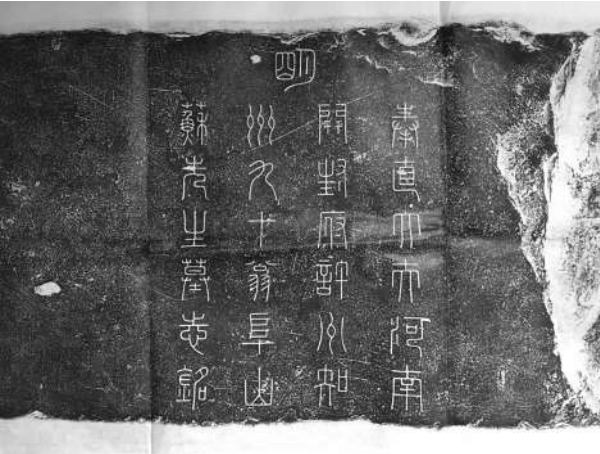 明
奉直大夫河南
開封府許州知
州九十翁阜山
蘇先生墓志銘